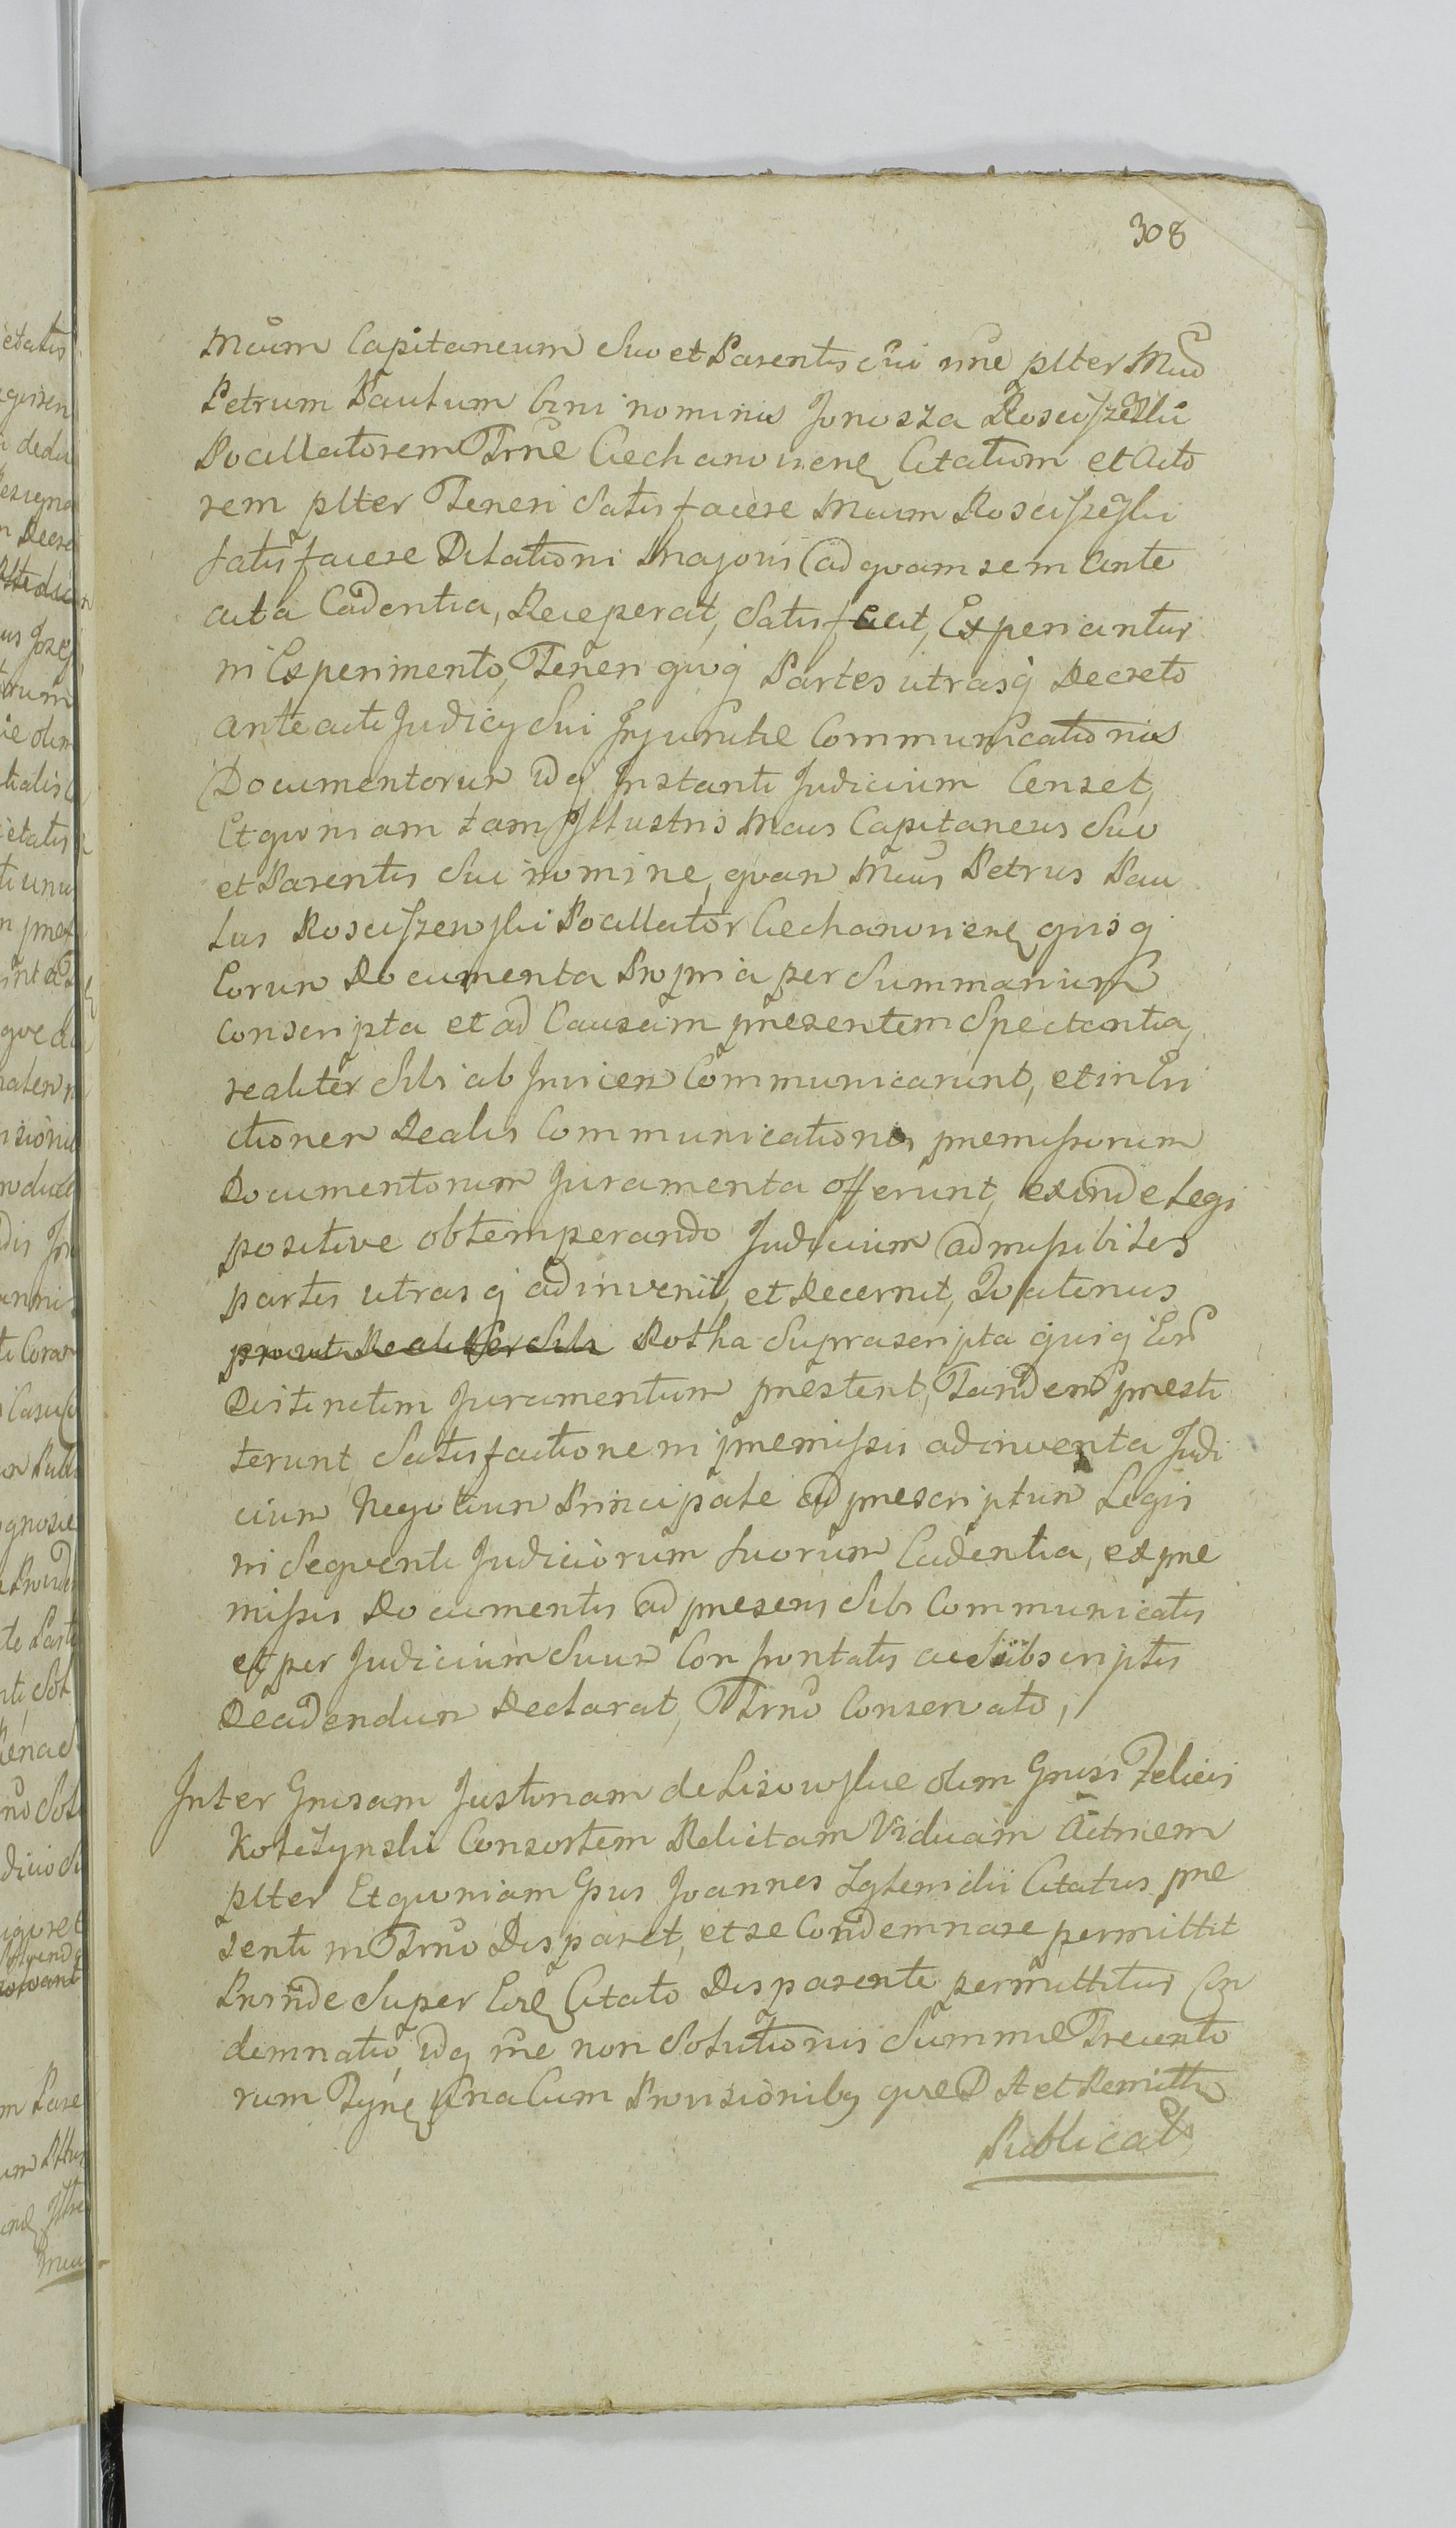 308
Mcum Capitaneum Suo et Parentis Sui nne plter Mcum
Petrum Paulum bini nominis Junosza Rosciszewski
Pocillatorem Trae Ciechanoviens Citatum et Acto
rem plter Teneri Satisfacere Mcum Rosciszewski
satisfacere Dilationi Majori ad quam sem Ante
acta Cadentia, Receperat, Satisfecit, Experiantur
in Experimento, Teneri quoq Partes utrasq Decreto
anteacti Judicy Sui Injunctae Communicationis
Documentorum idq Instanti Judicium Censet,
Et quoniam tam Illustris Mcus Capitaneus Suo
et Parentis Sui nomine, quam Mcus Petrus Pau
lus Rosciszewski Pocillator Ciechanoviens quisq
Eorum Documenta Propria per Summarium
Conscripta et ad Causam presentem Spectantia,
realiter Sibi ab Invicem Communicarunt, et in
ctionem Realis Communicationis premissorum
Documentorum Juramenta offerunt, exinde Legi
positive obtemperando Judicium admissibiles
partes utrasq adinvenit, et Decernit, Quatenus
prout Realiter Sibi Rotha Suprascripta quisq Eor
Distinctim Juramentum prestent, Tandem presti
terunt Satisfactione in premissis adinventa Judi
cium Negotium Principale ad prescriptum Legis
in Sequenti Judiciorum Suorum Cadentia, ex pre
missis Documentis ad presens Sibi Communicatis
et per Judicium Suum Confrontatis ac Subscriptis
Decidendum Declarat, Trno Conservato,
Inter Gnosam Justinam de Lisowskie olim Gnosi Felicis
Kotczynski Consortem Relictam Viduam Actricem
plter Et quoniam Gnsus Joannes Zglenicki Citatus pre
senti in Trno Disparet, et se Condemnare permittit
Proinde Super Eod Citato Disparente permittitur Con
demnatio, idq rne non Solutionis Summae Trecento
rum Una Cum Provisionibq que D A et Remitt
Publicat